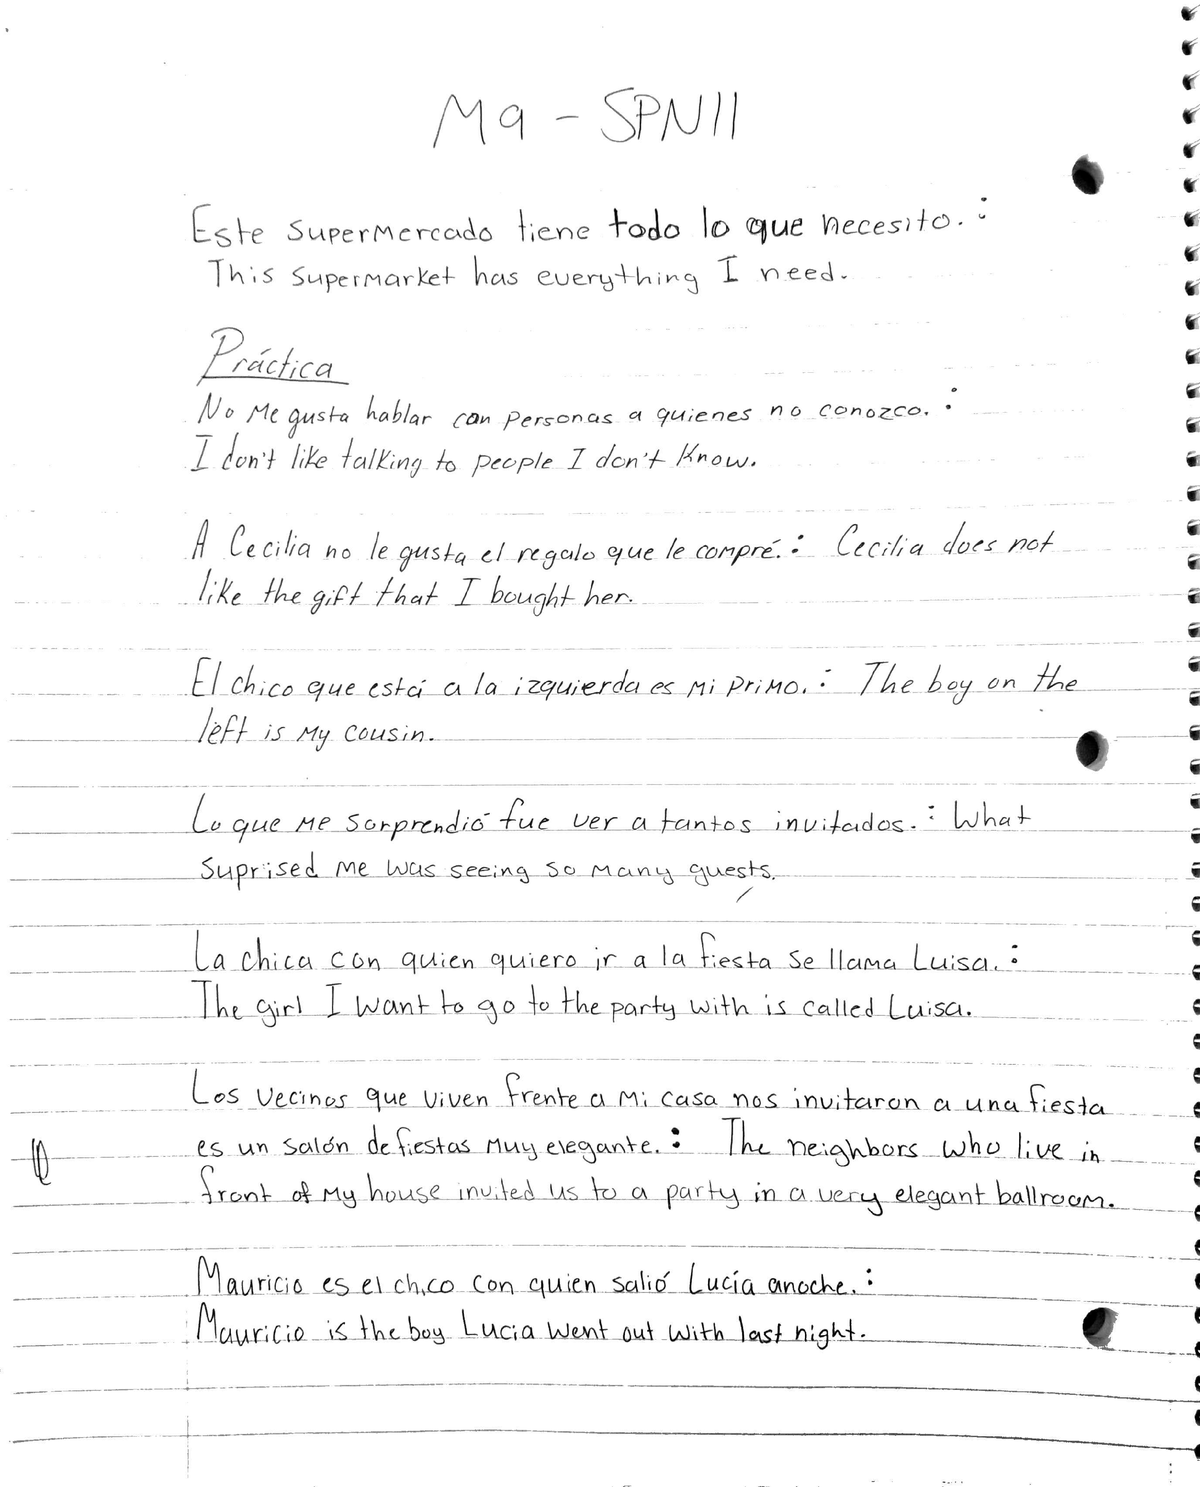 M9 - SPN11
Este supermercado tiene todo lo que necesito. :
This supermarket has everything I need.
Práctica
No me gusta hablar con personas a quienes no conozco. :
I don't like talking to people I don't know.
A Cecilia no le gusta el regalo que le compré. : Cecilia does not
like the gift that I bought her.
El chico que está a la izquierda es mi primo. : The boy on the
left is my cousin.
Lo que me sorprendió fue ver a tantos invitados. : What
suprised me was seeing so many guests.
La chica con quien quiero ir a la fiesta se llama Luisa. :
The girl I want to go to the party with is called Luisa.
Los vecinos que viven frente a mi casa nos invitaron a una fiesta
es un salón de fiestas muy elegante. : The neighbors who live in
front of my house invited us to a party in a very elegant ballroom.
Mauricio es el chico con quien salió Lucía anoche. :
Mauricio is the boy Lucia went out with last night.